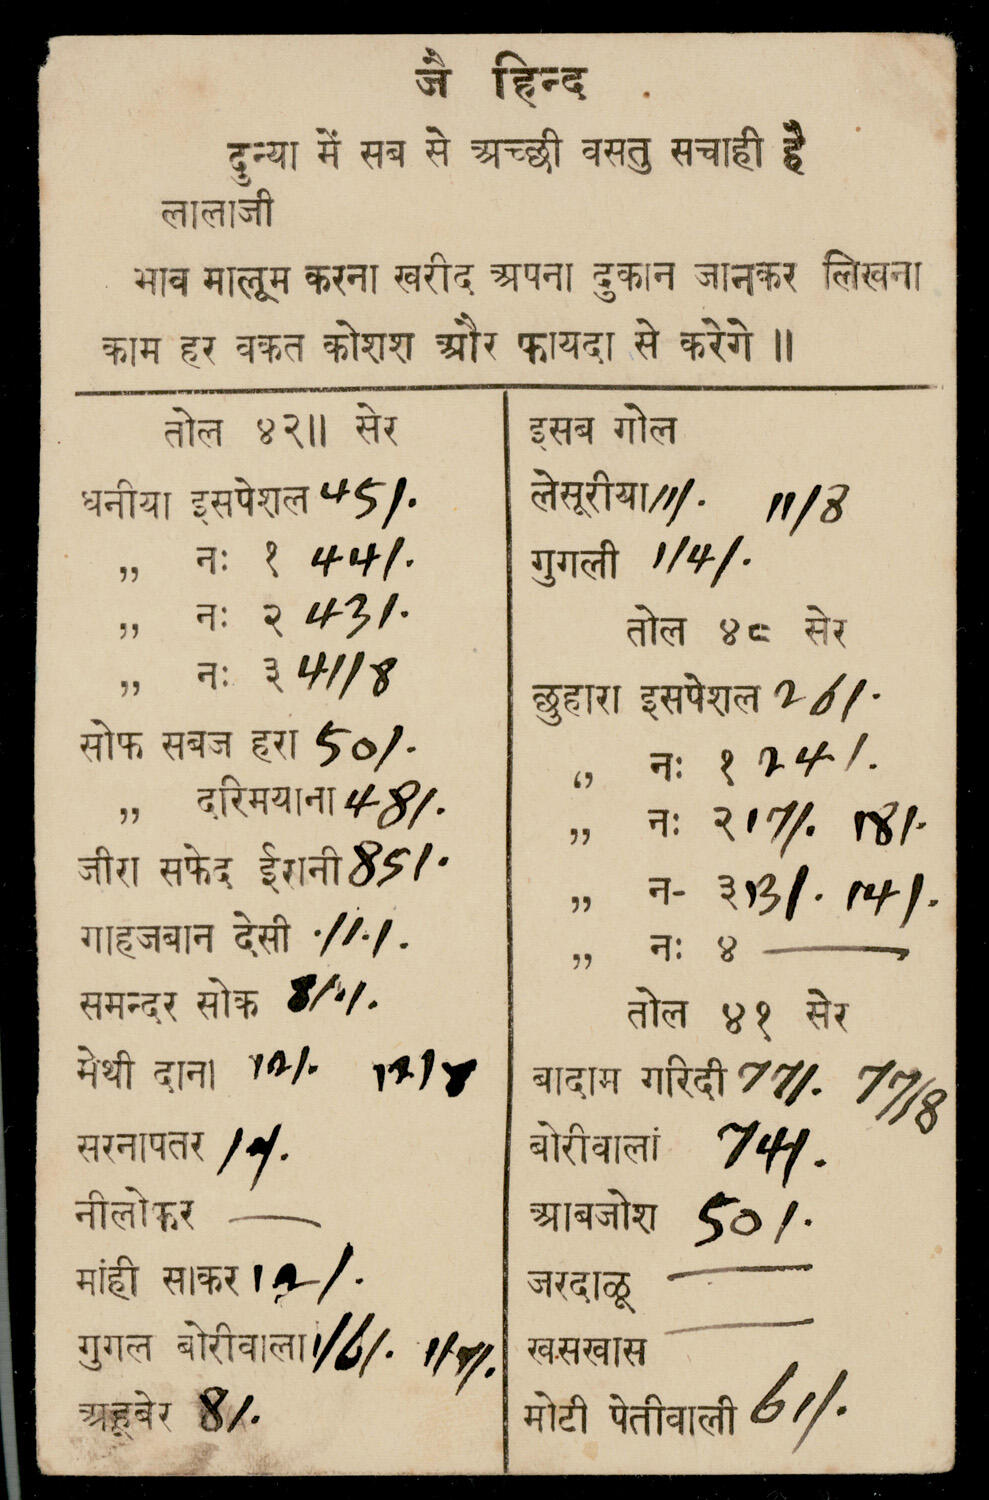 जै हिन्द
दुन्या में सब से अच्छी वसतु सचाही है
लालाजी
भाव मालूम करना खरीद अपना दुकान जानकर लिखना
काम हर वकत कोशश और फायदा से करेगे ॥
तोल ४२॥ सेर
धनीया इसपेशल 45/.
,, नः १ 44/.
,, नः २ 43/.
,, नः ३ 41/8
सोफ सबज हरा 50/.
,, दरिमयाना 48/.
जीरा सफेद ईरानी 85/.
गाहजबान देसी
समन्दर सोक
मेथी दाना 12/. 12/8
सरनापतर
नीलोफर —
मांही साकर 12/.
गुगल बोरीवाला
अहूबेर 8/.
इसब गोल
लेसूरीया 11/. 11/8
गुगली 114/.
तोल ४८ सेर
छुहारा इसपेशल 26/.
,, नः १ 24/.
,, नः २ 17/. 18/.
,, न- ३ 13/. 14/.
,, नः ४ —
तोल ४१ सेर
बादाम गरिदी 77/. 77/8
बोरीवालां 74/.
आबजोश 50/.
जरदाळू —
खसखास —
मोटी पेतीवाली 61/.